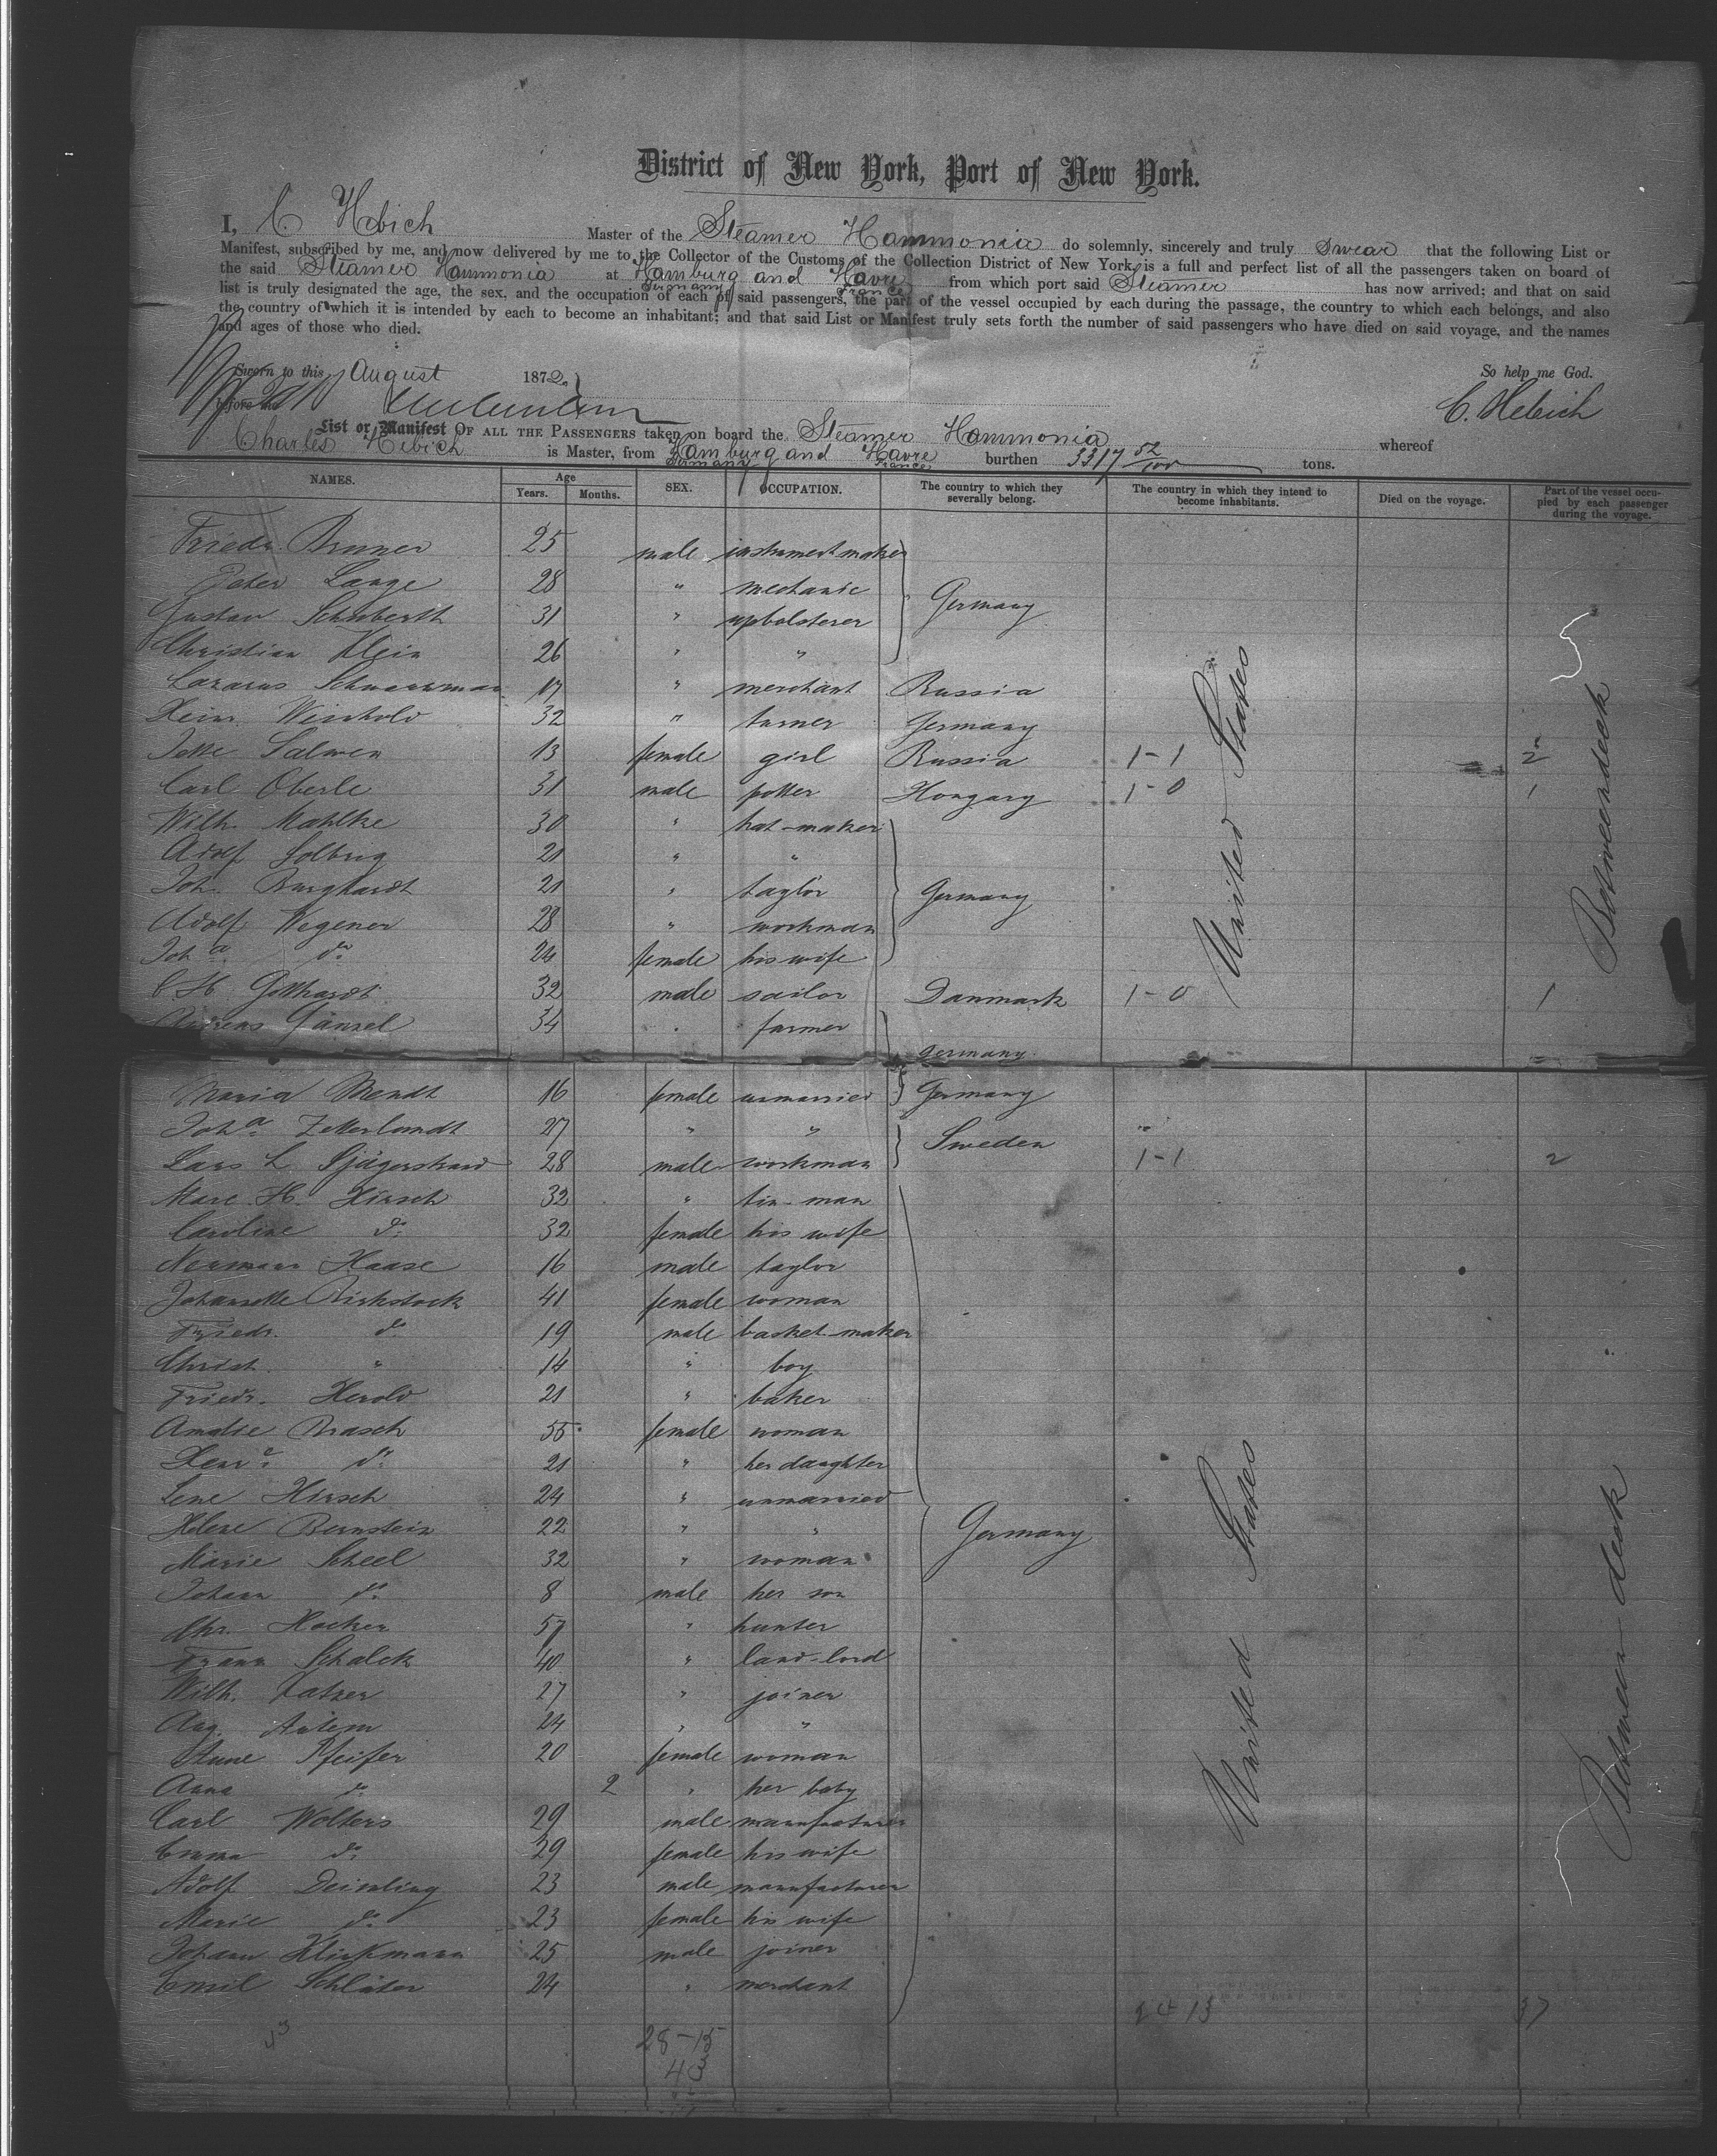 District of New York, Port of New York.
I, C. Hebich Master of the Steamer Hammonia do solemnly, sincerely and truly Swear that the following List or
Manifest, subscribed by me, and now delivered by me to the Collector of the Customs of the Collection District of New York, is a full and perfect list of all the passengers taken on board of
the said Steamer Hammonia at Hamburg and Havre from which port said Steamer has now arrived; and that on said
Germany France
list is truly designated the age, the sex, and the occupation of each of said passengers, the part of the vessel occupied by each during the passage, the country to which each belongs, and also
the country of which it is intended by each to become an inhabitant; and that said List or Manifest truly sets forth the number of said passengers who have died on said voyage, and the names
and ages of those who died.
Sworn to this August 1872 So help me God.
before me C. Hebich
List or Manifest OF ALL THE PASSENGERS taken on board the Steamer Hammonia whereof
Charles Hebich is Master, from Hamburg and Havre burthen 3317 52/100 tons.
Germany France
NAMES. Age Years. Months. SEX. OCCUPATION. The country to which they severally belong. The country in which they intend to become inhabitants. Died on the voyage. Part of the vessel occupied by each passenger during the voyage.
Friedr. Bruner 25 male instrument maker
Peter Lange 28 " mechanic
Gustav Schuberth 31 " upholsterer Germany
Christian Klein 26 " "
Lazarus Schwarzman 17 " merchant Russia
Heinr. Weinhold 32 " turner Germany
Jette Salwen 13 female girl Russia 1-1 2
Carl Oberle 31 male potter Hongary 1-0 1
Wilh. Mahlke 30 " hat-maker
Adolf Solbrig 21 " "
Joh. Burghardt 21 " taylor Germany
Adolf Wegener 28 " workman
Joha. do 24 female his wife
C H Gotthardt 32 male sailor Danmark 1-0 1
Andreas Gänsel 34 " farmer
Germany
United States
Betweendeck
Maria Wendt 16 female unmarried Germany
Joha. Zetterlundt 27 " " Sweden
Lars L Sjögerstrand 28 male workman 1-1 2
Marc. H. Hirsch 32 " tin-man
Caroline do 32 female his wife
Hermann Haase 16 male taylor
Johannette Birkstock 41 female woman
Friedr. do 19 male basket-maker
Christ. " 14 " boy
Friedr. Herold 21 " baker
Amalie Brasch 55 female woman
Henr. do 21 " her daughter
Lene Hirsch 24 " unmarried
Helene Bernstein 22 " " Germany
Marie Scheel 32 " woman
Johann do 8 male her son
Chr. Hocker 57 " hunter
Franz Schalck 40 " land-lord
Wilh. Zatzer 27 " joiner
Aug. Autem 24 " "
Anne Pfeifer 20 female woman
Anna do 2 " her baby
Carl Wolters 29 male manufacturer
Emma do 29 female his wife
Adolf Deimling 23 male manufacturer
Marie do 23 female his wife
Johann Klinkmann 25 male joiner
Emil Schlüter 24 " merchant
United States
Between deck
24 13 37
43 28-15
43